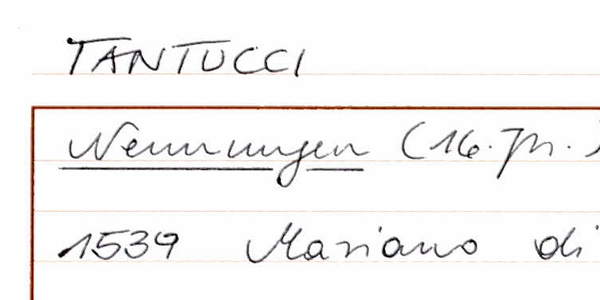 TANTUCCI
Nennungen (16. Jh.)
1539 Mariano di